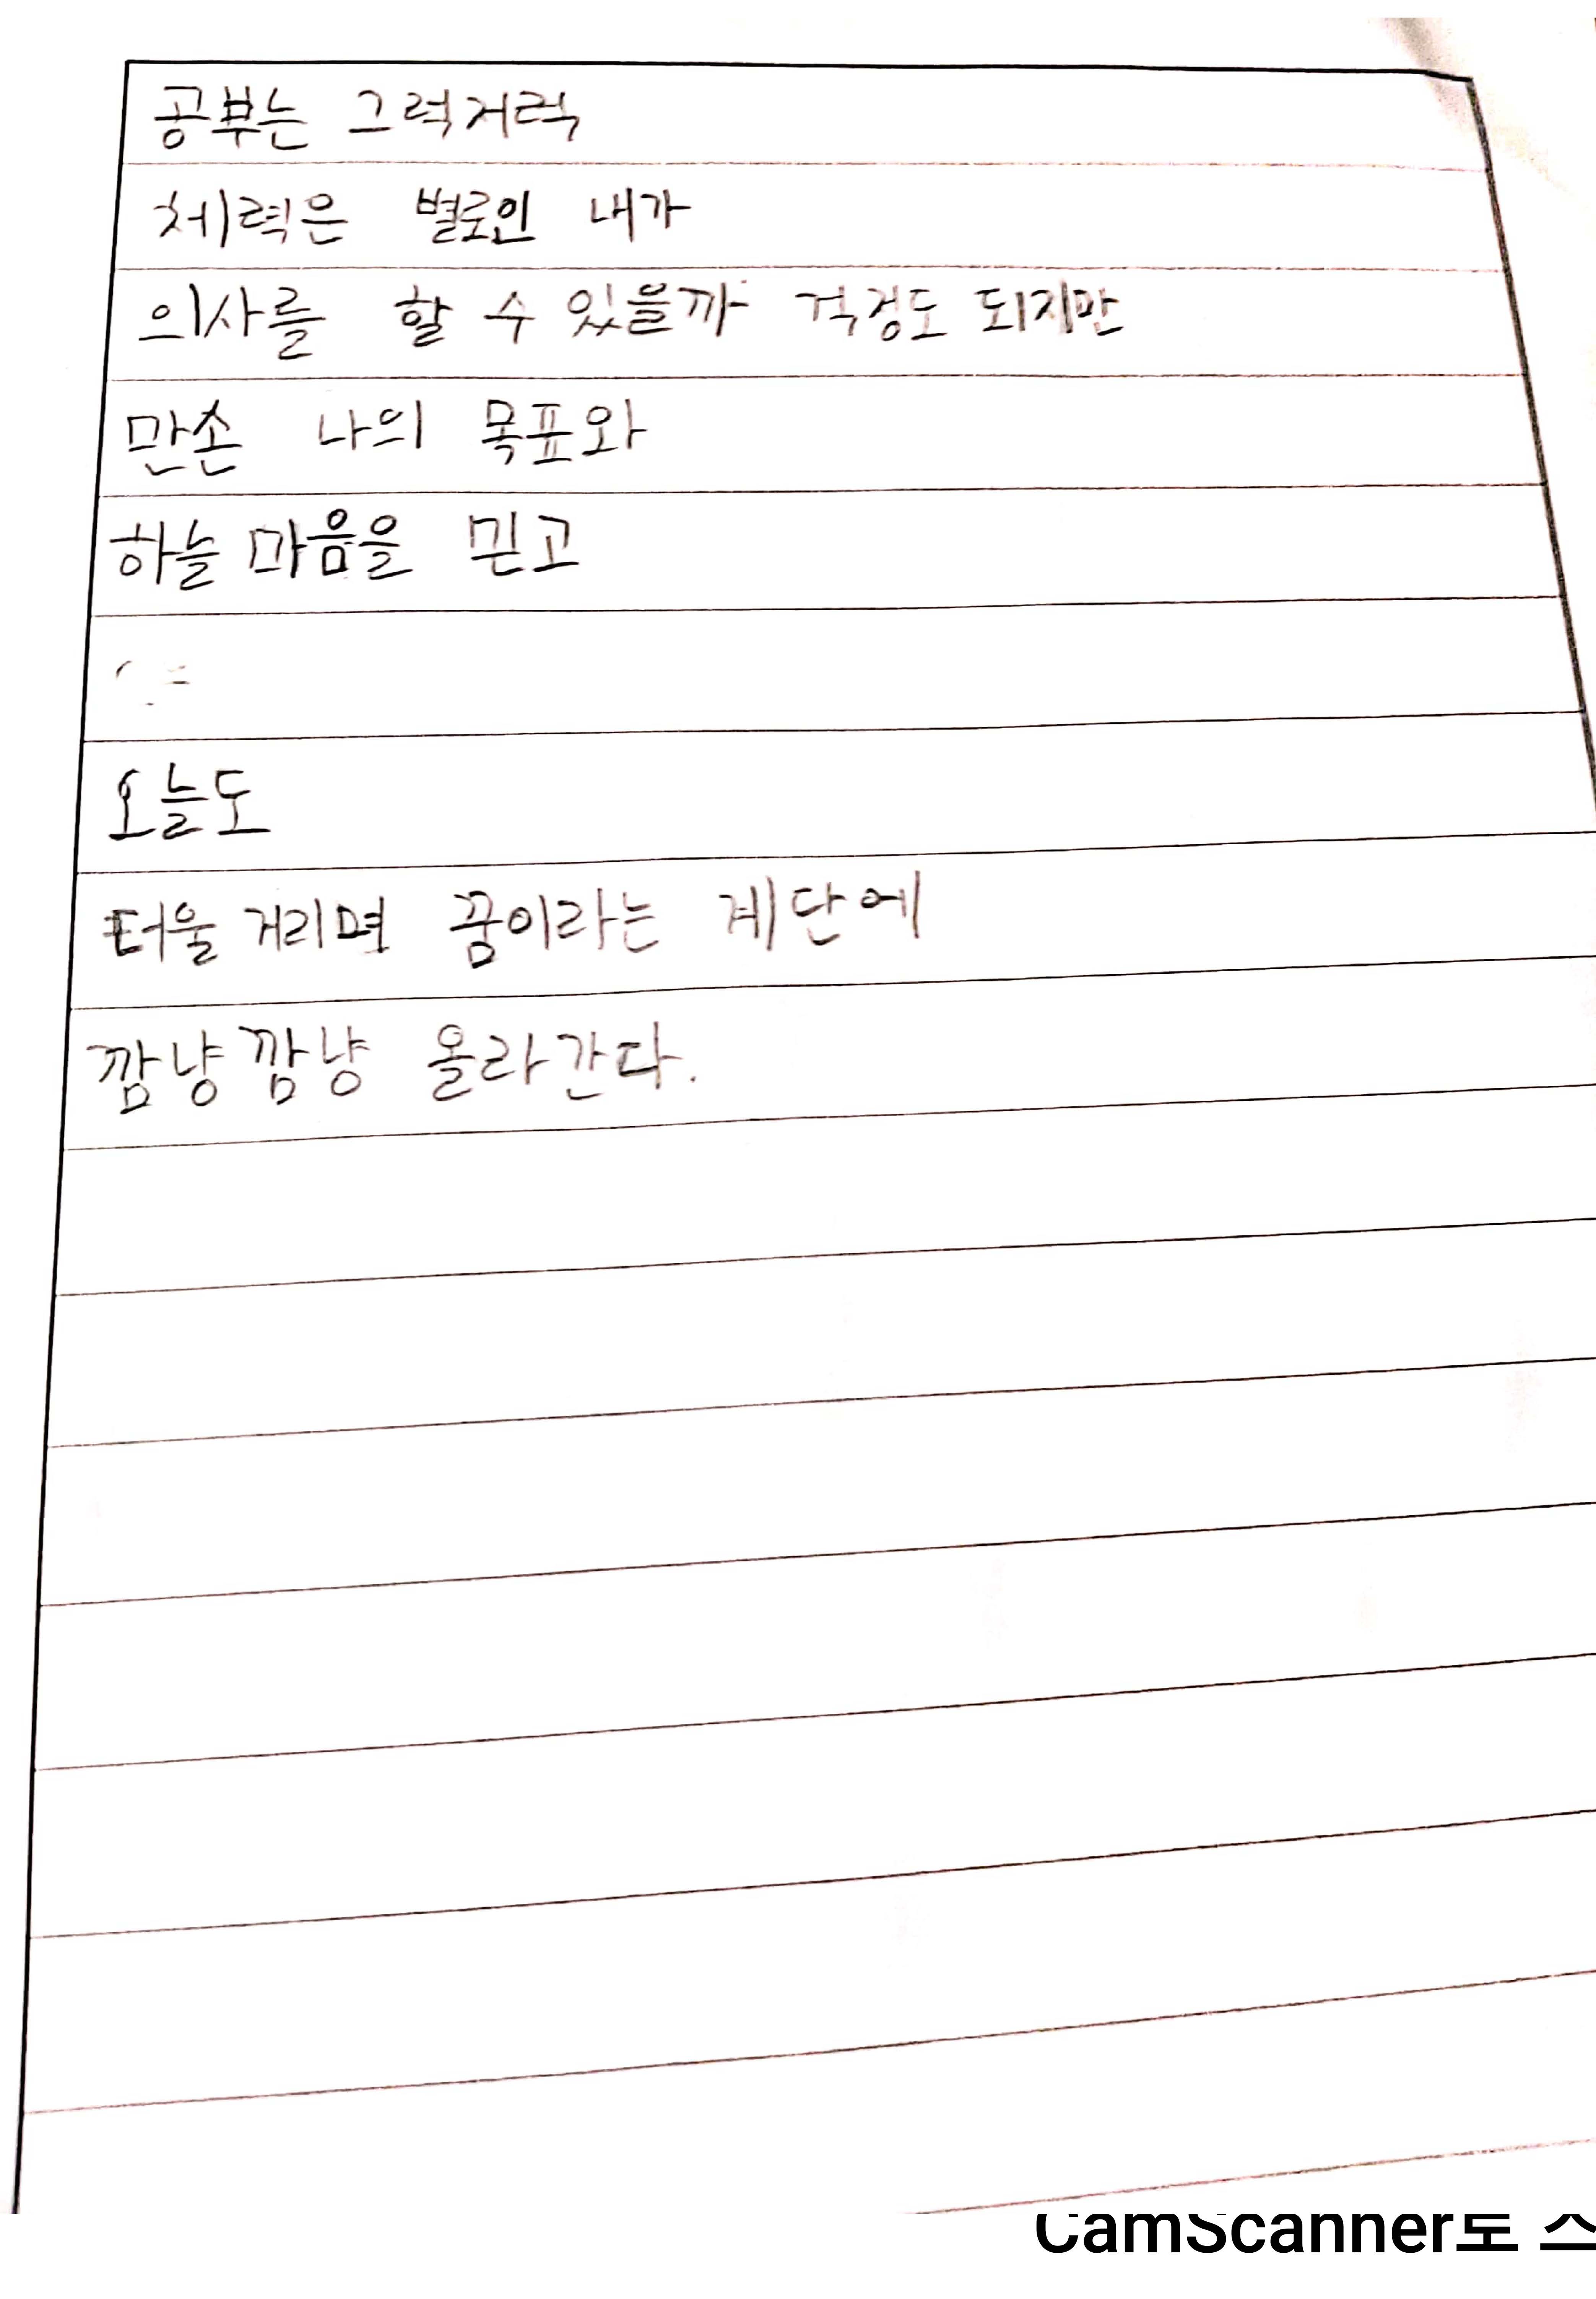 공부는 그럭저럭
체력은 별로인 내가
의사를 할 수 있을까 걱정도 되지만
만손 나의 목표와
하늘 마음을 믿고
오늘도
터울거리며 꿈이라는 계단에
깜냥깜냥 올라간다.
CamScanner로 스